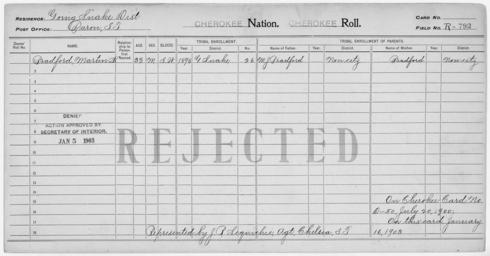 RESIDENCE: Going Snake Dist
POST OFFICE: Baron, I.T.
CHEROKEE Nation. CHEROKEE Roll.
CARD NO.
FIELD NO. R-792
NAME. AGE. SEX. BLOOD. TRIBAL ENROLLMENT. TRIBAL ENROLLMENT OF PARENTS.
Year. District. No. Name of Father. Year. District. Name of Mother. Year. District.
1 Bradford, Martin 33 M I.W. 1896 G. Snake 26 M J Bradford Noncity Bradford Noncity
2
3
4
5
6
7 DENIED
8 ACTION APPROVED BY
9 SECRETARY OF INTERIOR.
10 JAN 5 1903
REJECTED
11
12
13
14
15 On Cherokee Card No.
16 D-50, July 20, 1900;
17 On this card January
18 Represented by J. P. Agt. Chelsea, I.T. 16, 1903